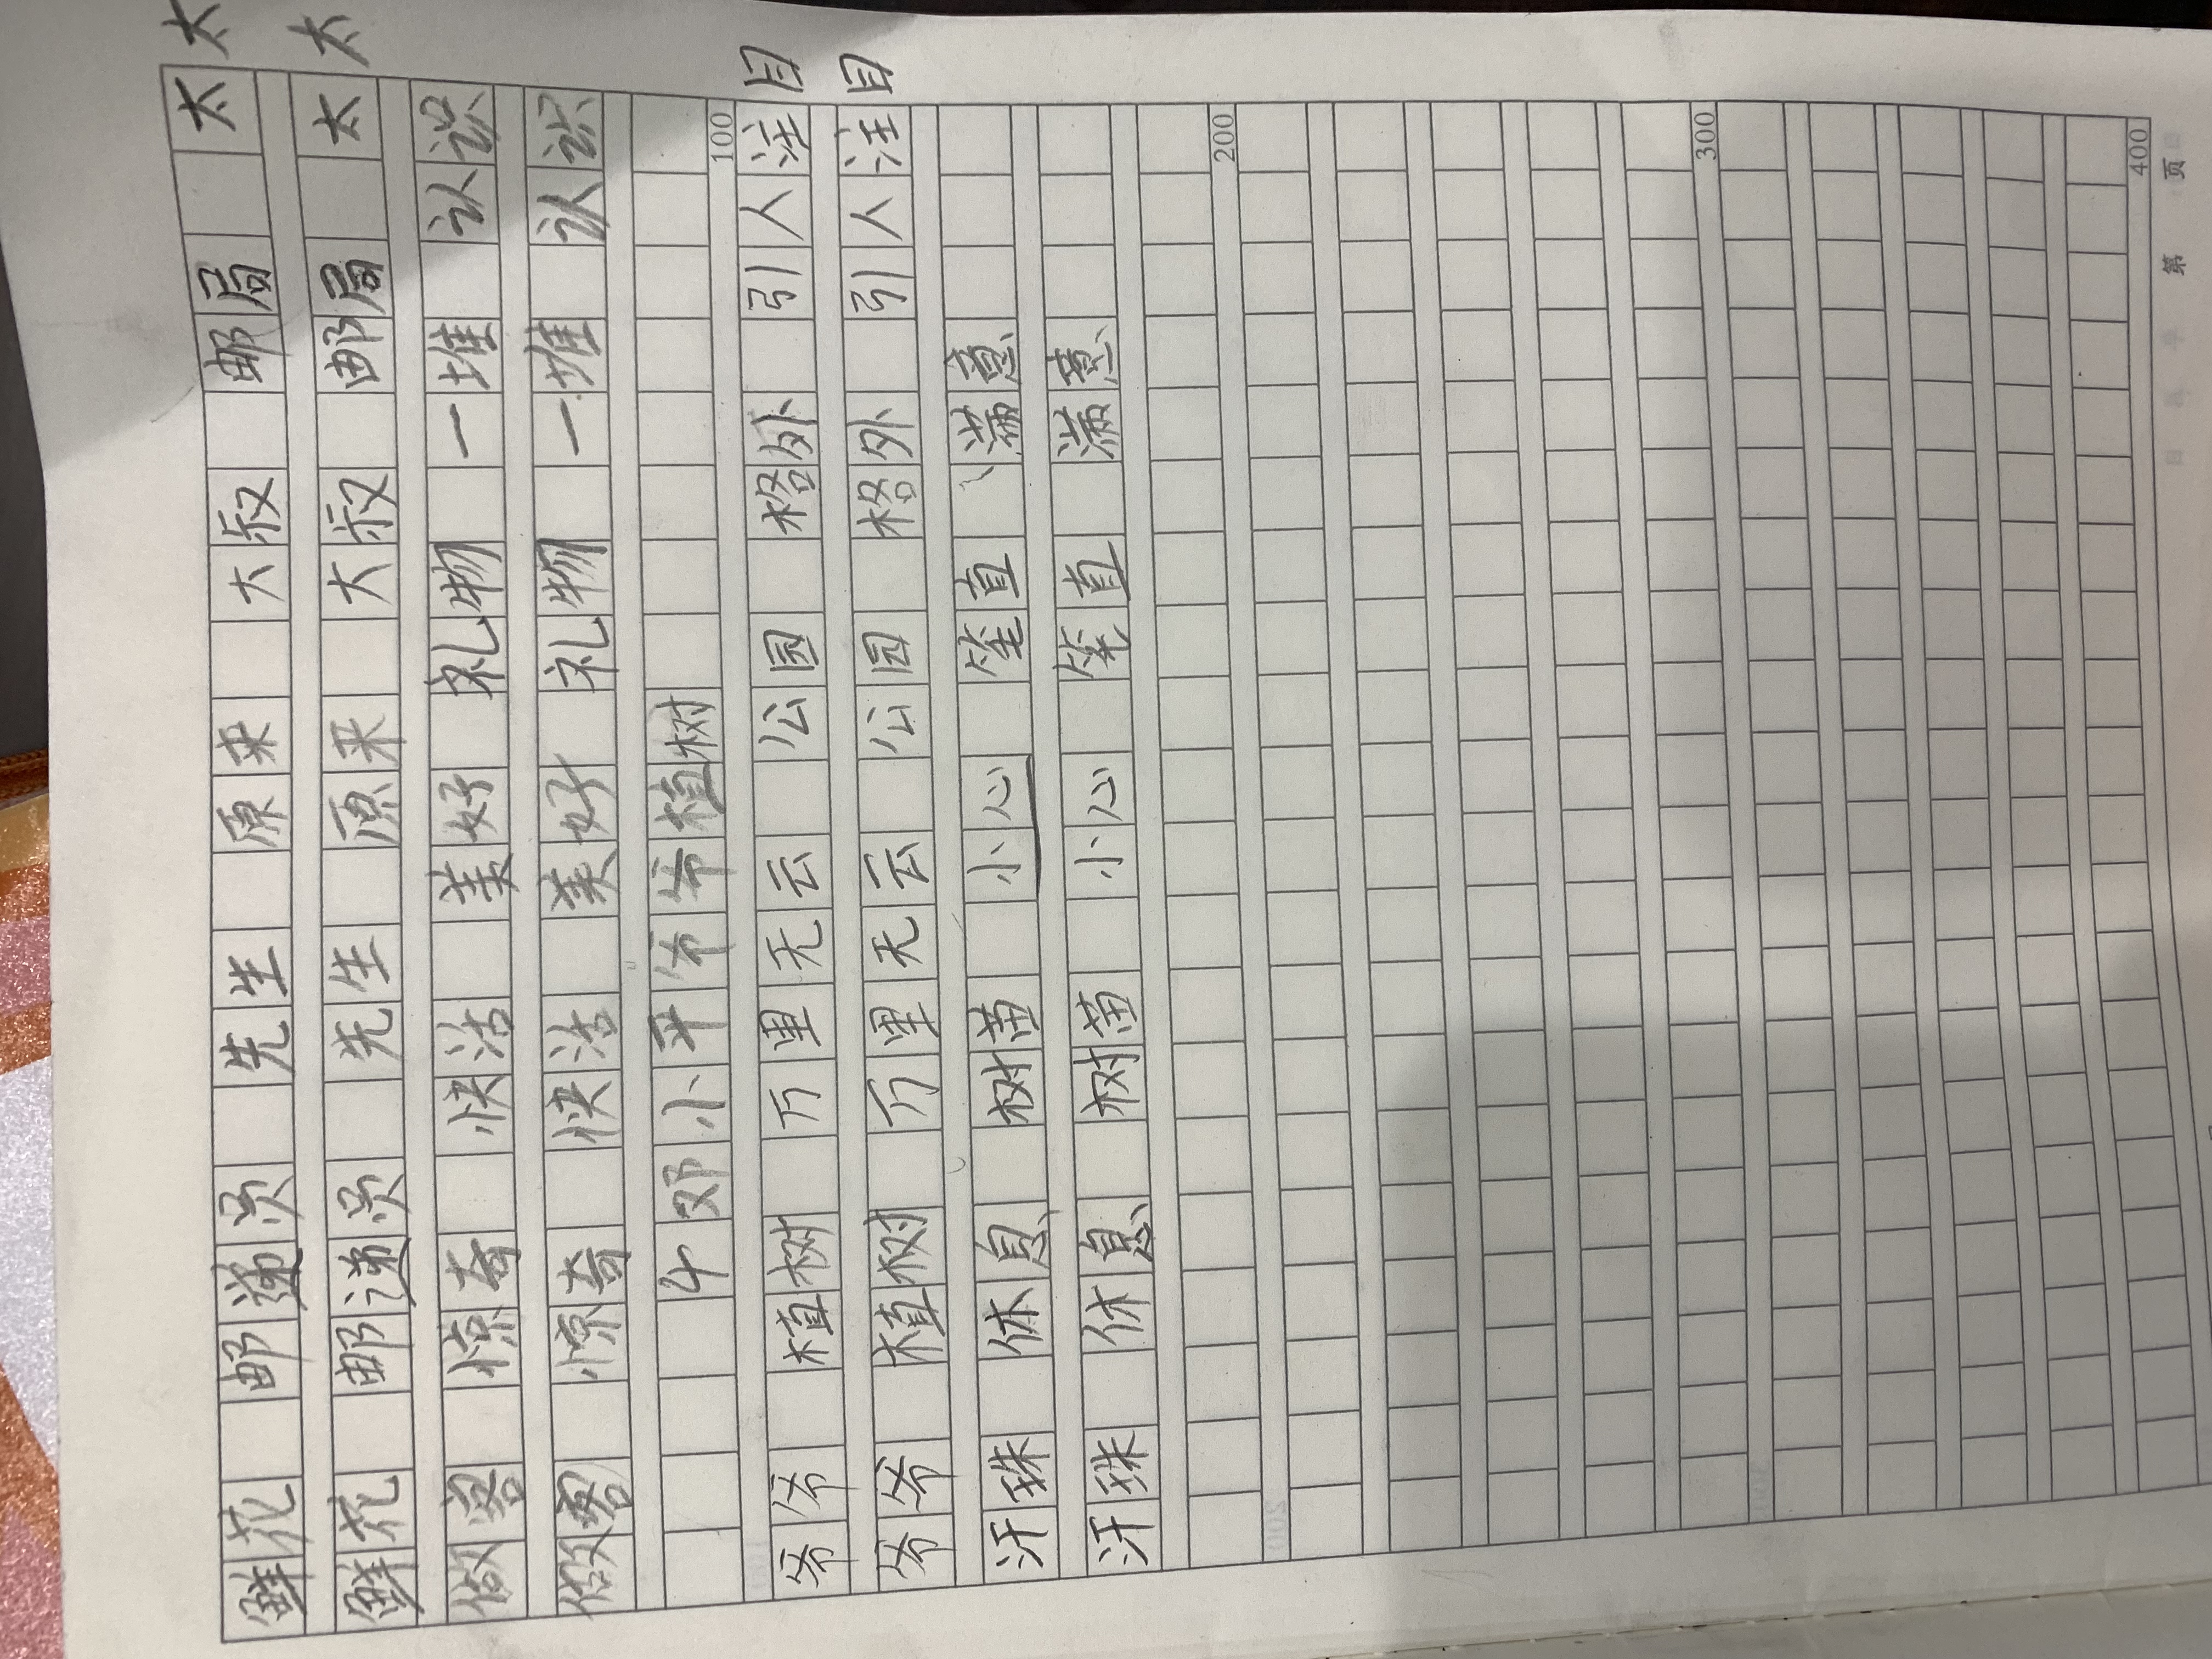 鲜花 邮递员 先生 原来 大叔 邮局 太太
鲜花 邮递员 先生 原来 大叔 邮局 太太
做客 惊奇 快活 美好 礼物 一堆 认识
做客 惊奇 快活 美好 礼物 一堆 认识
4 邓小平爷爷植树
100
爷爷 植树 万里无云 公园 格外 引人注目
爷爷 植树 万里无云 公园 格外 引人注目
汗珠 休息 树苗 小心 笔直 满意
汗珠 休息 树苗 小心 笔直 满意
200
300
400
第 页